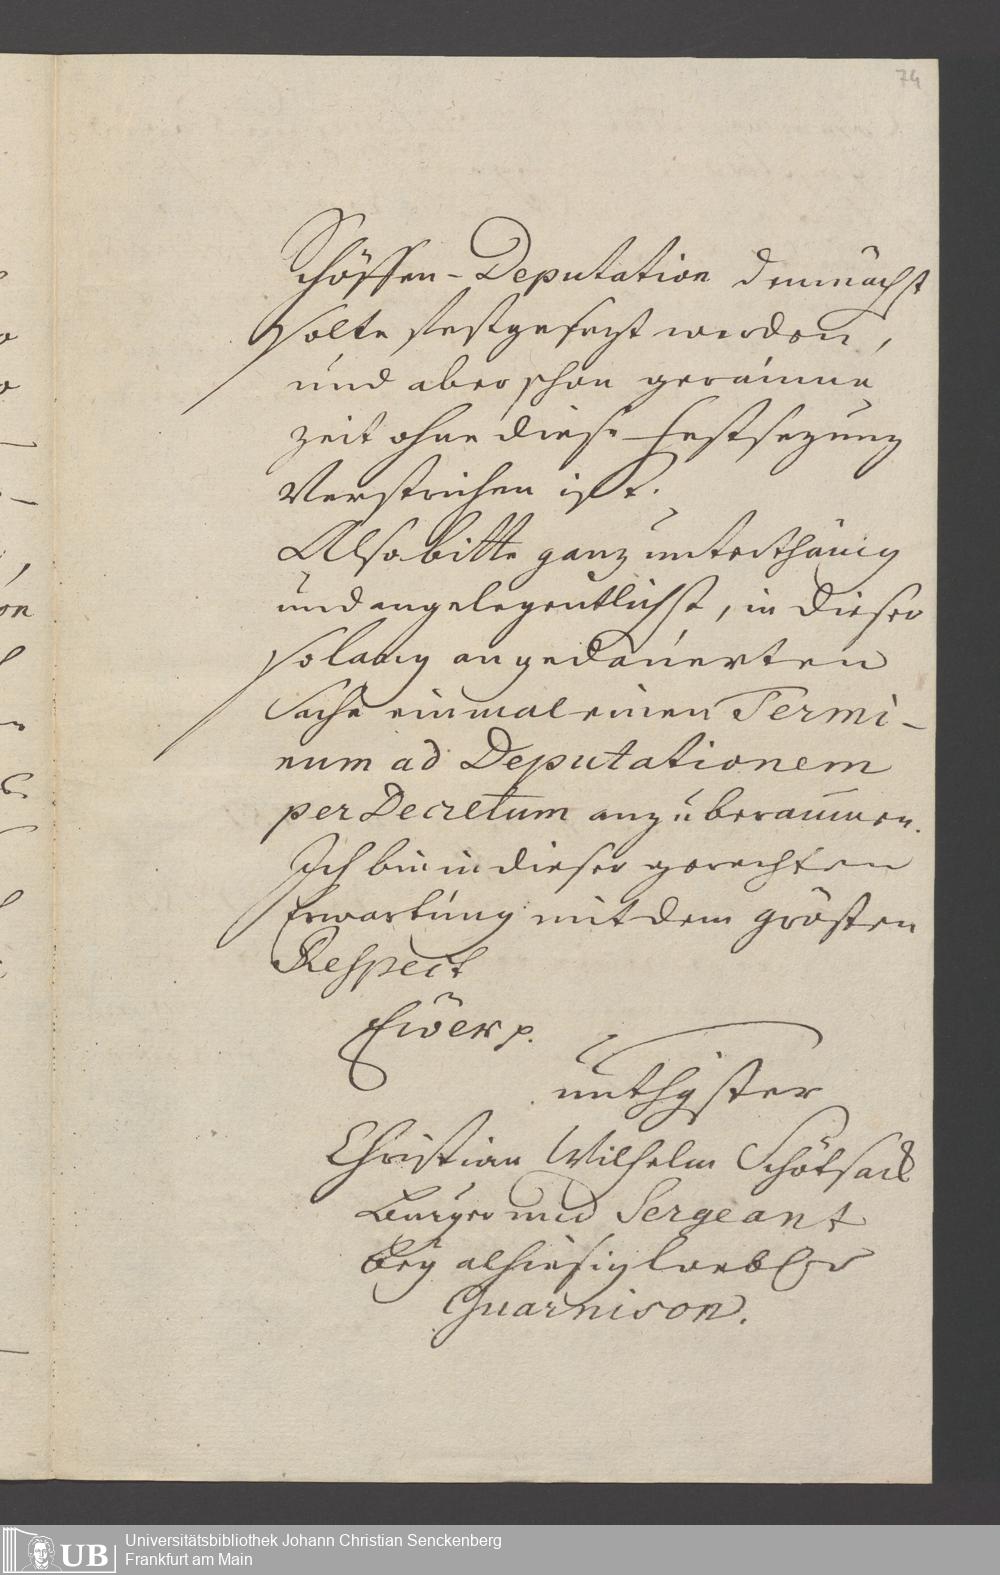 74
Schöffen-Deputation demnächst
solte festgesezt werden,
und aber schon geraume
zeit ohne diese Festsezung
Verstrichen ist.
Also bitte ganz unterthänig
und angelegentlichst, in dieser
so lang angedauerten
Sache einmal einen Termi-
num ad Deputationem
per Decretum anzuberaumen.
Ich bin in dieser gerechten
Erwartung mit dem grösten
Respect
Ewer p.
unthgster
Christian Wilhelm Schötsack
Burger und Sergeant
bey alhiesig loebler
Guarnison.
UB
Universitätsbibliothek Johann Christian Senckenberg
Frankfurt am Main